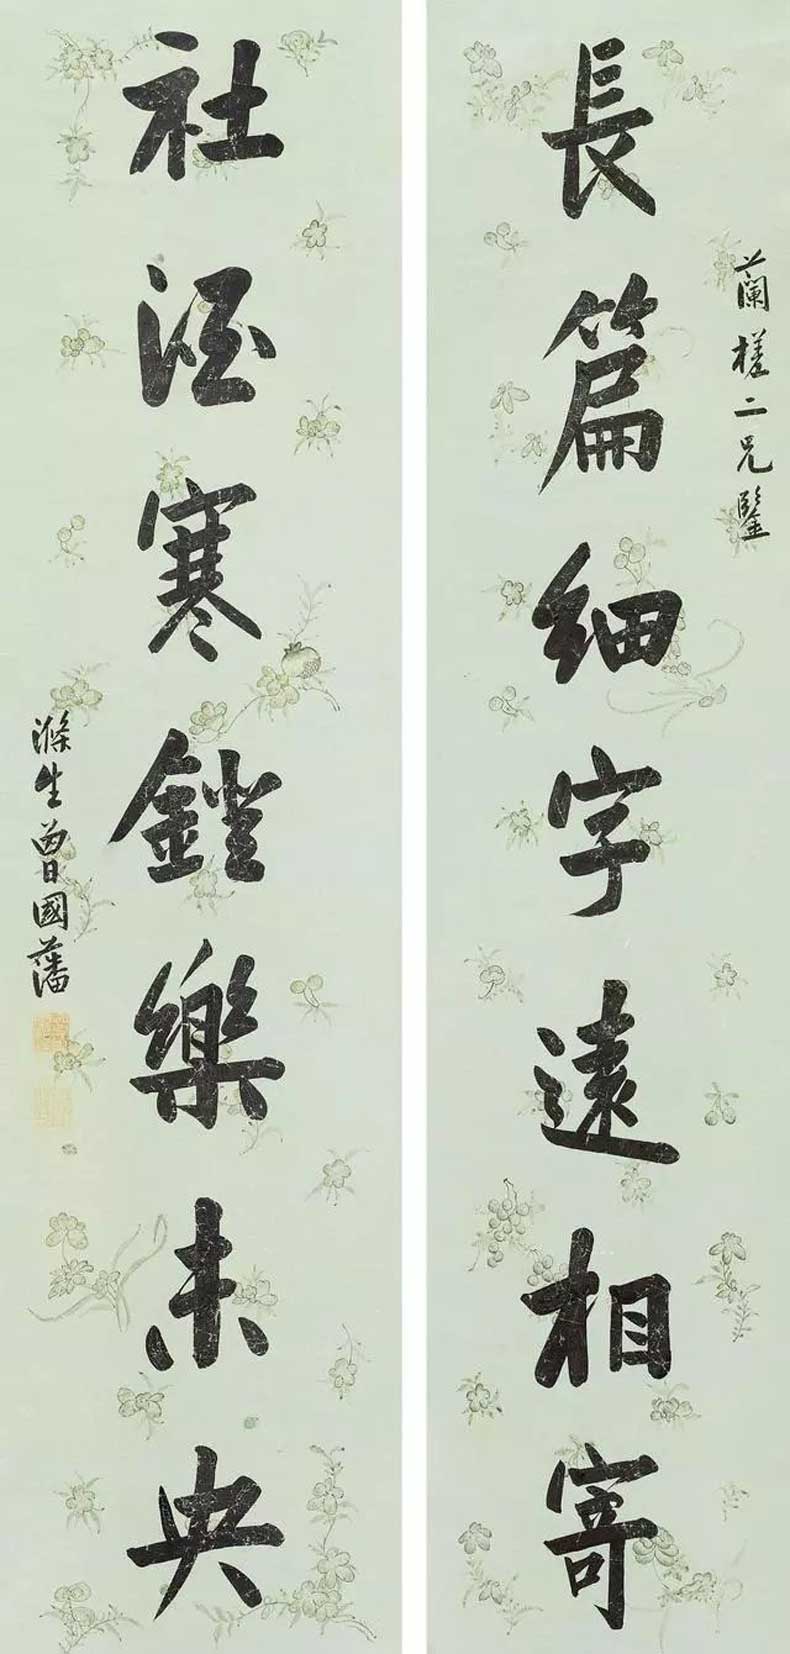 長篇細字遠相寄
蘭槎二兄鑒
社酒寒鐙樂未央
滌生曾國藩